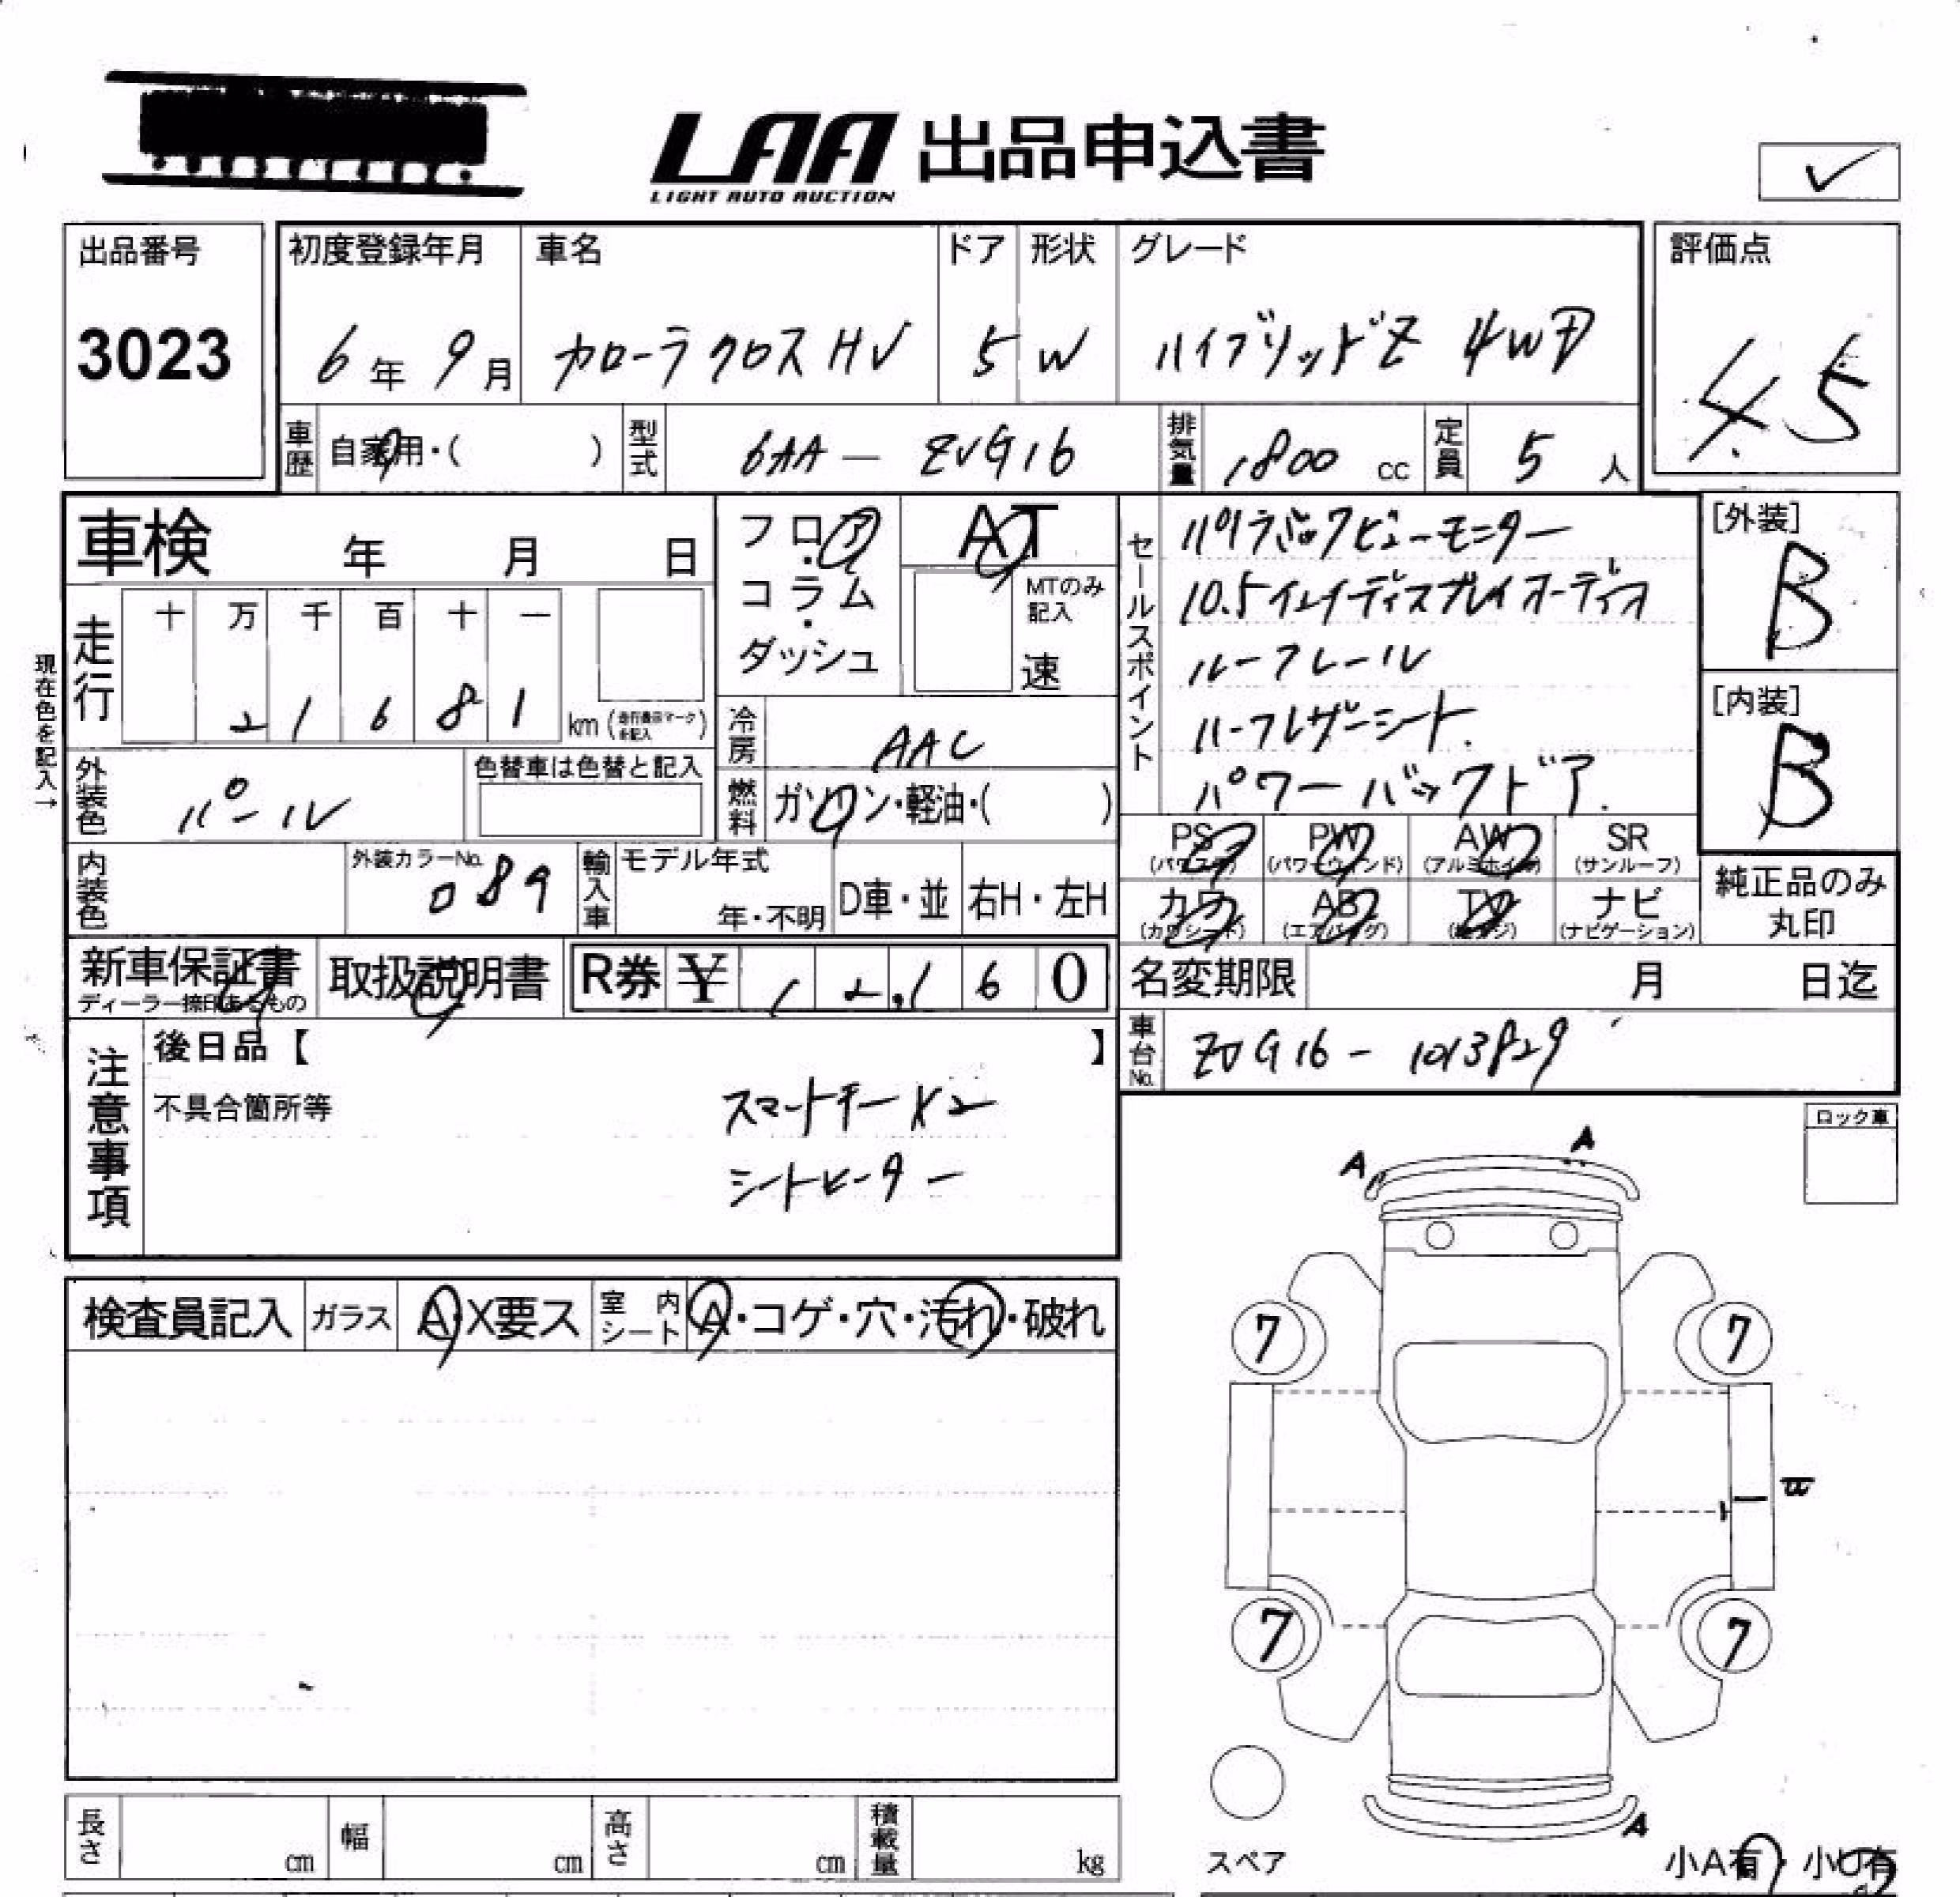 LAA 出品申込書
LIGHT AUTO AUCTION
✓
出品番号 初度登録年月 車名 ドア 形状 グレード 評価点
3023 6年 9月 カローラクロス HV 5 W ハイブリッドZ 4WD 4.5
車歴 自家用・( ) 型式 6AA - ZVG16 排気量 1800 cc 定員 5 人
車検 年 月 日
フロア・コラム・ダッシュ
AT
MTのみ記入
速
セールスポイント
パノラミックビューモニター
10.5インチディスプレイオーディオ
ルーフレール
ハーフレザーシート.
パワーバックドア.
[外装]
B
[内装]
B
現在色を記入→
走行 十 万 千 百 十 一
2 1 6 8 1 km (走行表示マークを記入)
冷房 AAC
外装色 パール 色替車は色替と記入
燃料 ガソリン・軽油・( )
PS (パワステ) PW (パワーウィンド) AW (アルミホイル) SR (サンルーフ)
内装色 外装カラーNo. 089 輸入車 モデル年式 年・不明 D車・並 右H・左H
カワ (カワシート) AB (エアバッグ) TV ナビ (ナビゲーション)
純正品のみ丸印
新車保証書 ディーラー捺印あるもの 取扱説明書 R券 ¥ 12,160
名変期限 月 日迄
車台No. ZVG16 - 1013829
注意事項
後日品【 】
不具合箇所等
スマートキー×2
シートヒーター
ロック車
A
A
検査員記入 ガラス A・X要ス 室内シート A・コゲ・穴・汚れ・破れ
7 7
7 7
A
スペア
小A有・小U有
長さ cm 幅 cm 高さ cm 積載量 kg